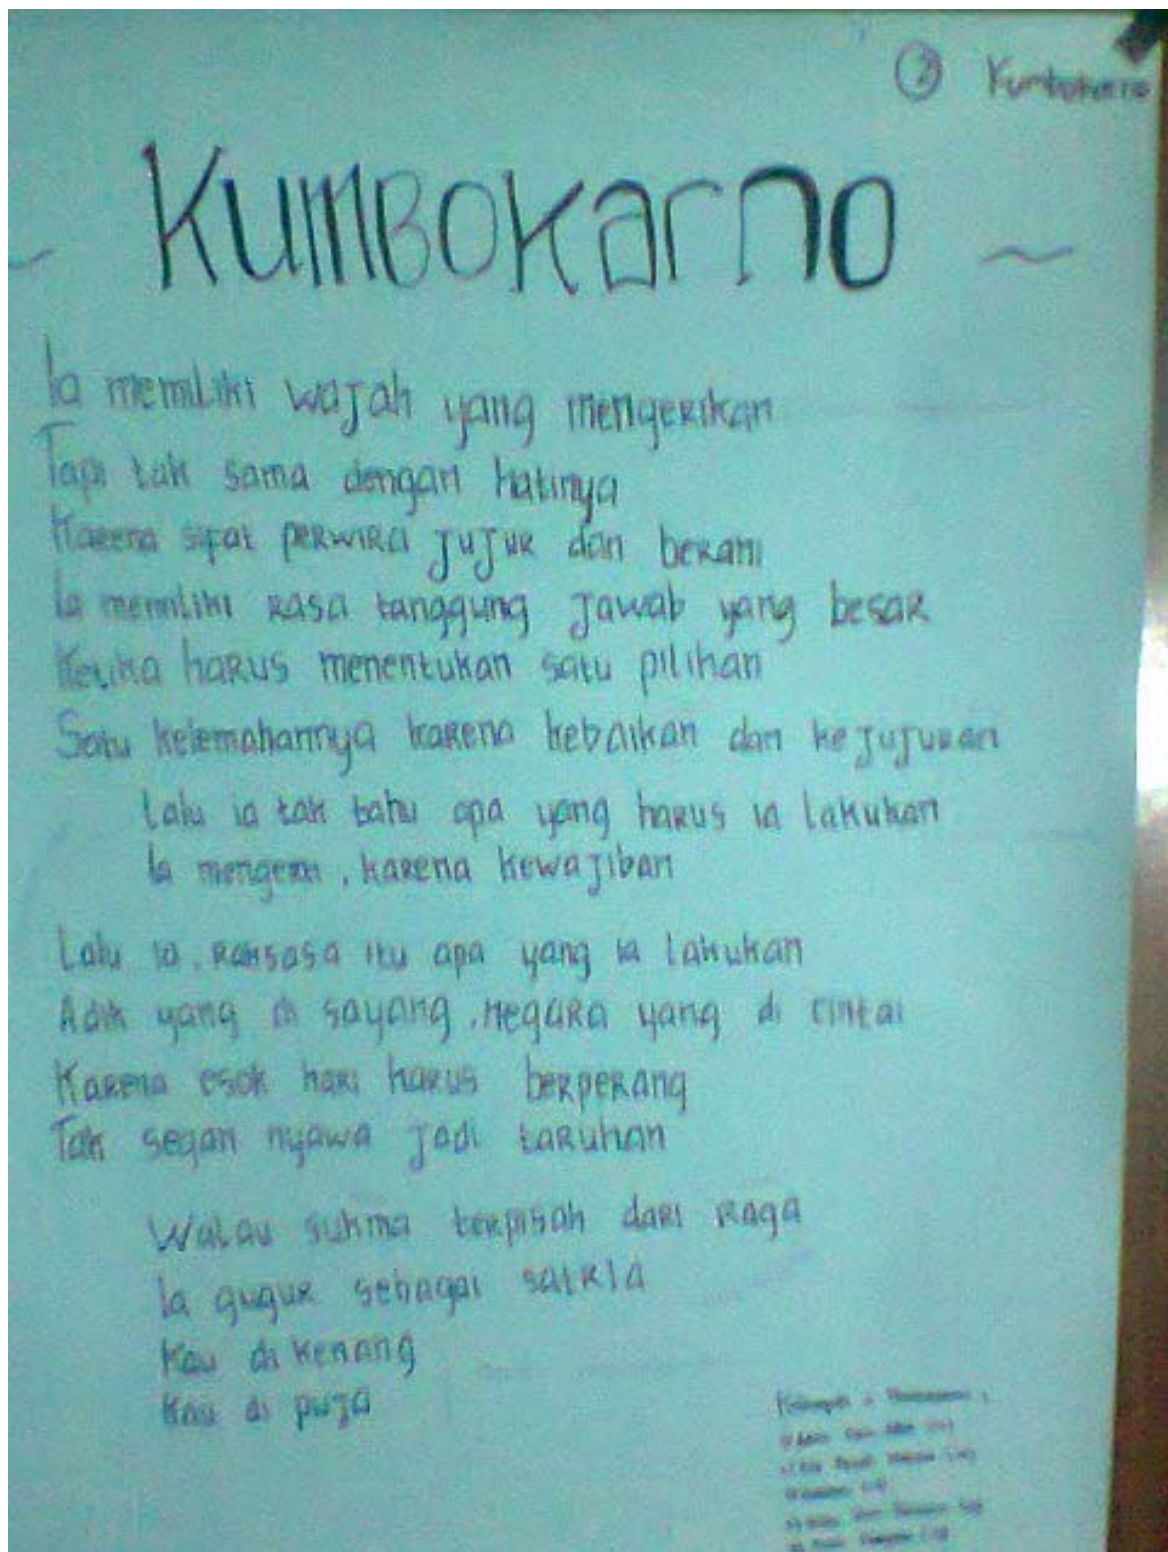 ② Kumbokarno
Kumbokarno
Ia memiliki wajah yang mengerikan
Tapi tak sama dengan hatinya
Karena sifat perwira jujur dan berani
Ia memiliki rasa tanggung jawab yang besar
Ketika harus menentukan satu pilihan
Satu kelemahannya karena kebaikan dan kejujuran
Lalu ia tak tahu apa yang harus ia lakukan
Ia mengerti, karena kewajiban
Lalu ia, raksasa itu apa yang ia lakukan
Adik yang di sayang, negara yang di cintai
Karena esok hari harus berperang
Tak segan nyawa jadi taruhan
Walau sukma terpisah dari raga
Ia gugur sebagai satria
Kau di kenang
Kau di puja
Kelompok